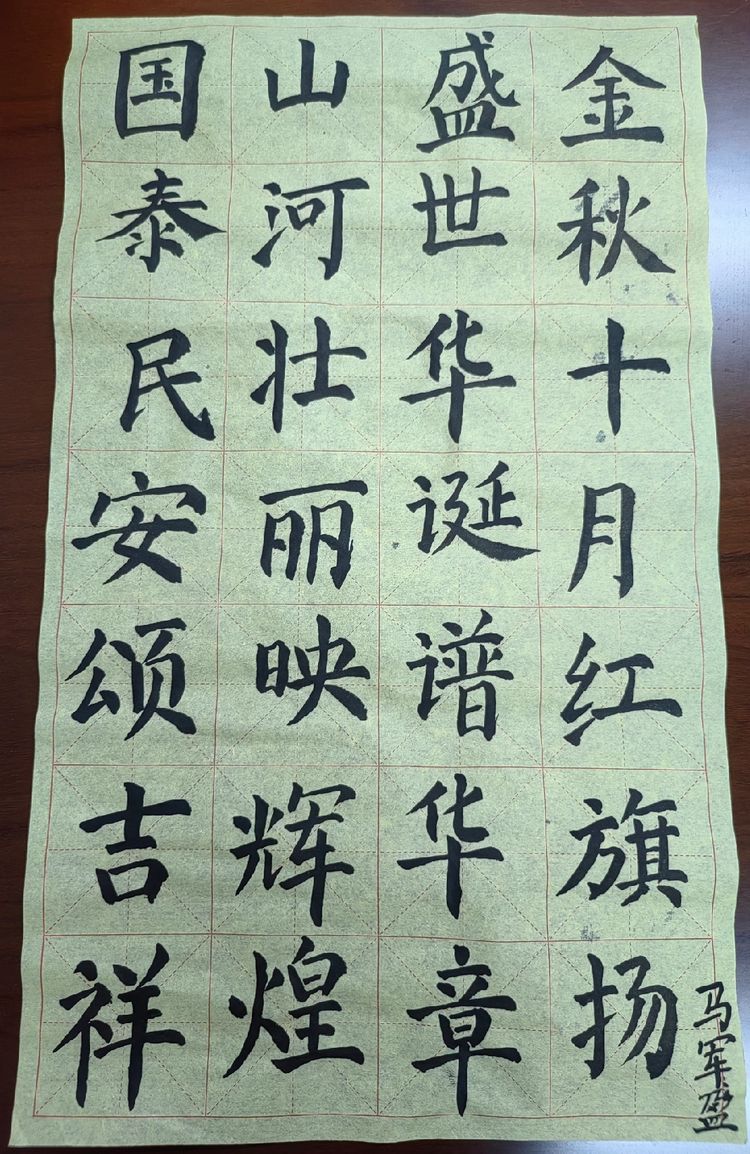 金秋十月红旗扬
盛世华诞谱华章
山河壮丽映辉煌
国泰民安颂吉祥
马军盈